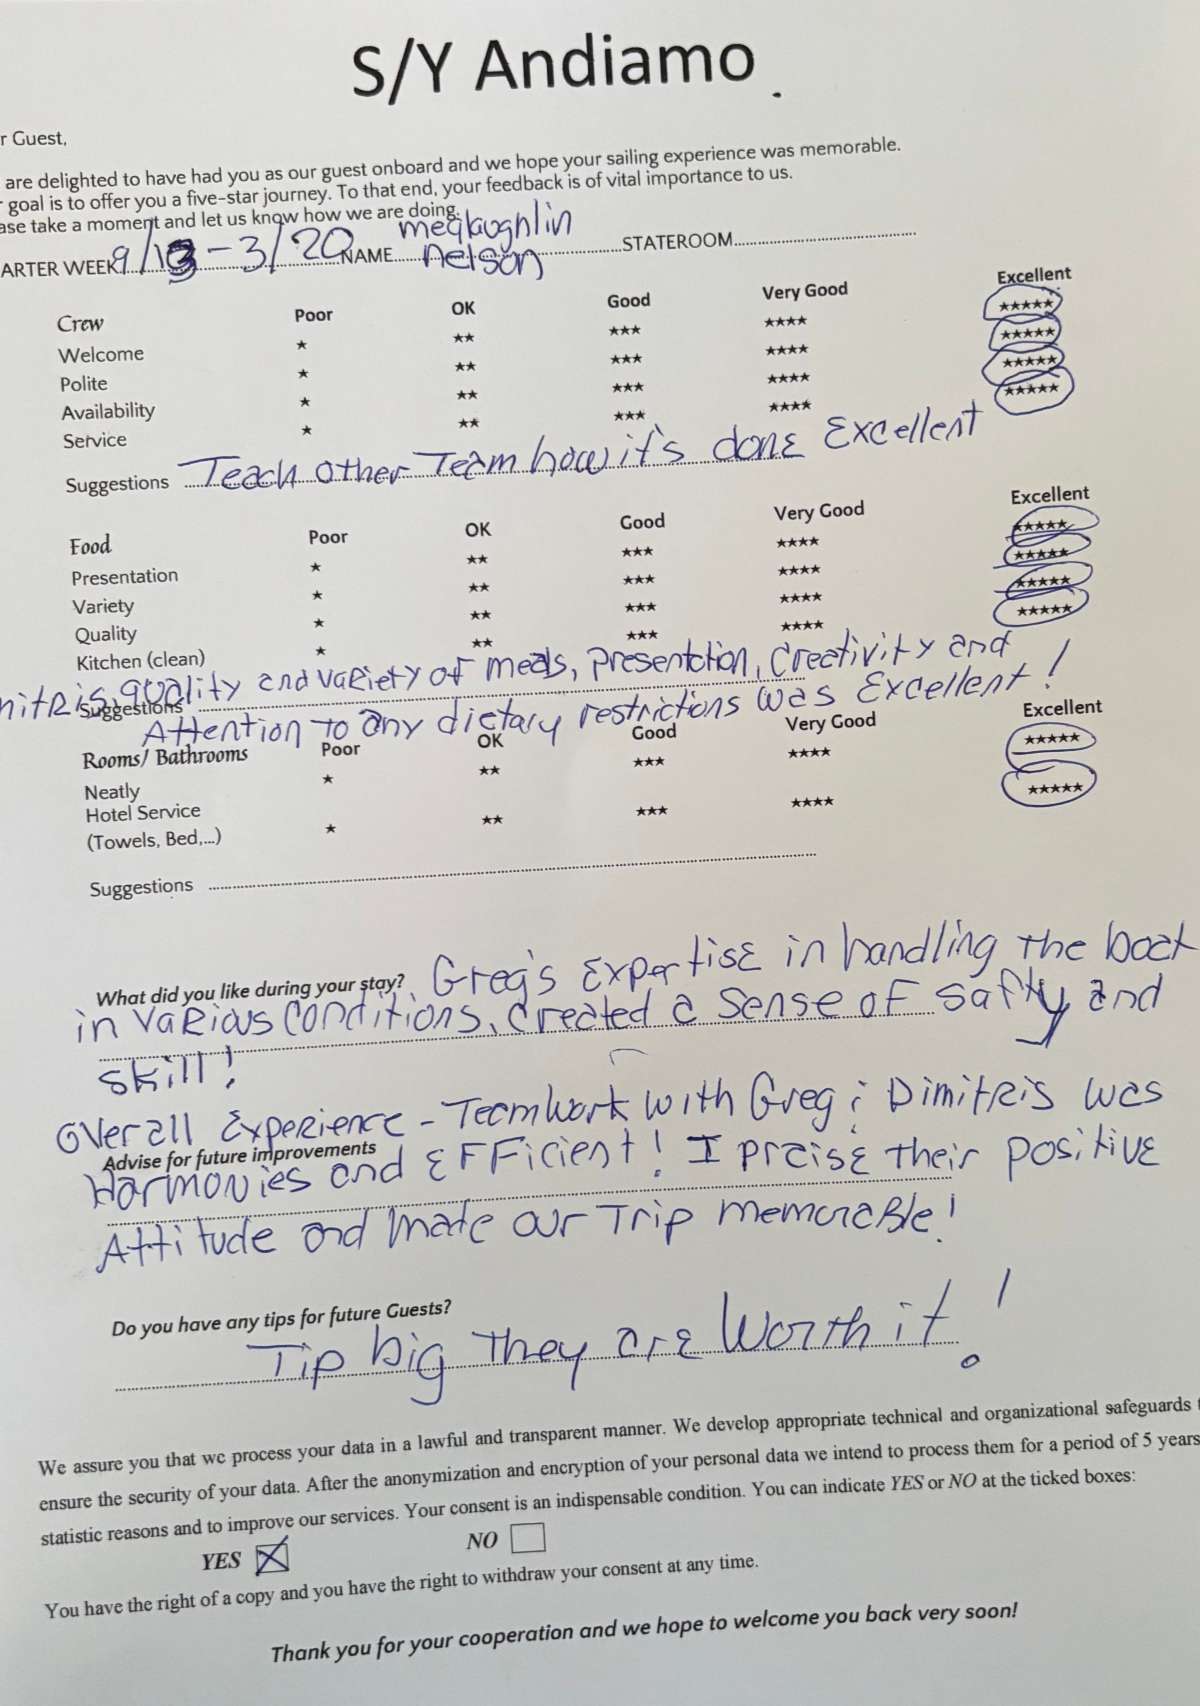 S/Y Andiamo
r Guest,
are delighted to have had you as our guest onboard and we hope your sailing experience was memorable.
goal is to offer you a five-star journey. To that end, your feedback is of vital importance to us.
ase take a moment and let us know how we are doing.
ARTER WEEK 9/13 - 3/20 NAME meglaughlin STATEROOM
nelson
Crew Poor OK Good Very Good Excellent
Welcome ★ ★★ ★★★ ★★★★ ★★★★★
Polite ★ ★★ ★★★ ★★★★ ★★★★★
Availability ★ ★★ ★★★ ★★★★ ★★★★★
Service ★ ★★ ★★★ ★★★★ ★★★★★
Suggestions Teach other Team how it's done Excellent
Food Poor OK Good Very Good Excellent
Presentation ★ ★★ ★★★ ★★★★ ★★★★★
Variety ★ ★★ ★★★ ★★★★ ★★★★★
Quality ★ ★★ ★★★ ★★★★ ★★★★★
Kitchen (clean) ★ ★★ ★★★ ★★★★ ★★★★★
mitris, quality and variety of meals, presentation, creativity and
Suggestions
Attention to any dietary restrictions was Excellent!
Rooms/ Bathrooms Poor OK Good Very Good Excellent
Neatly ★ ★★ ★★★ ★★★★ ★★★★★
Hotel Service
(Towels, Bed,...) ★ ★★ ★★★ ★★★★ ★★★★★
Suggestions
What did you like during your stay? Greg's Expertise in handling the boat
in various conditions, created a sense of safty and
skill!
Overall Experience - Teamwork with Greg & Dimitris was
Advise for future improvements
Harmonies and Efficient! I praise their positive
Attitude and made our Trip memorable!
Do you have any tips for future Guests?
Tip big they are worth it!
We assure you that we process your data in a lawful and transparent manner. We develop appropriate technical and organizational safeguards t
ensure the security of your data. After the anonymization and encryption of your personal data we intend to process them for a period of 5 years
statistic reasons and to improve our services. Your consent is an indispensable condition. You can indicate YES or NO at the ticked boxes:
YES NO
You have the right of a copy and you have the right to withdraw your consent at any time.
Thank you for your cooperation and we hope to welcome you back very soon!